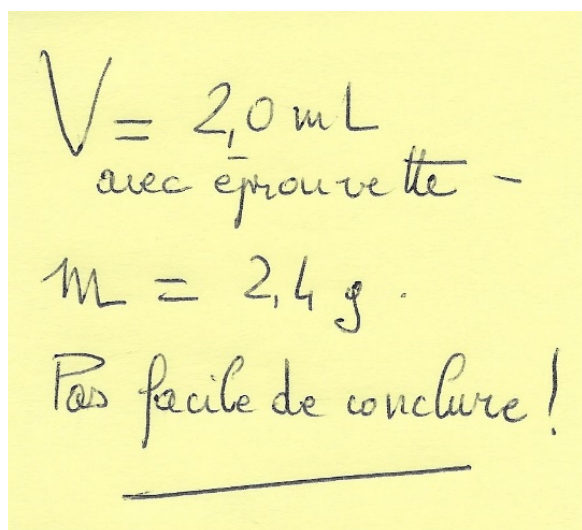 V = 2,0 mL
avec éprouvette -
m = 2,4 g.
Pas facile de conclure !